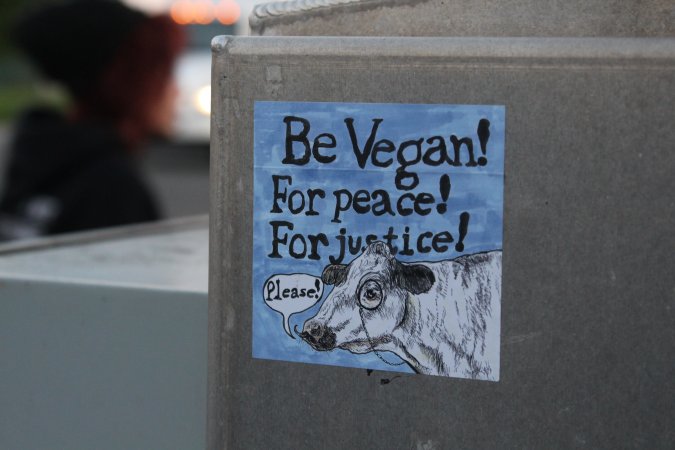 Be Vegan!
For peace!
For justice!
Please!